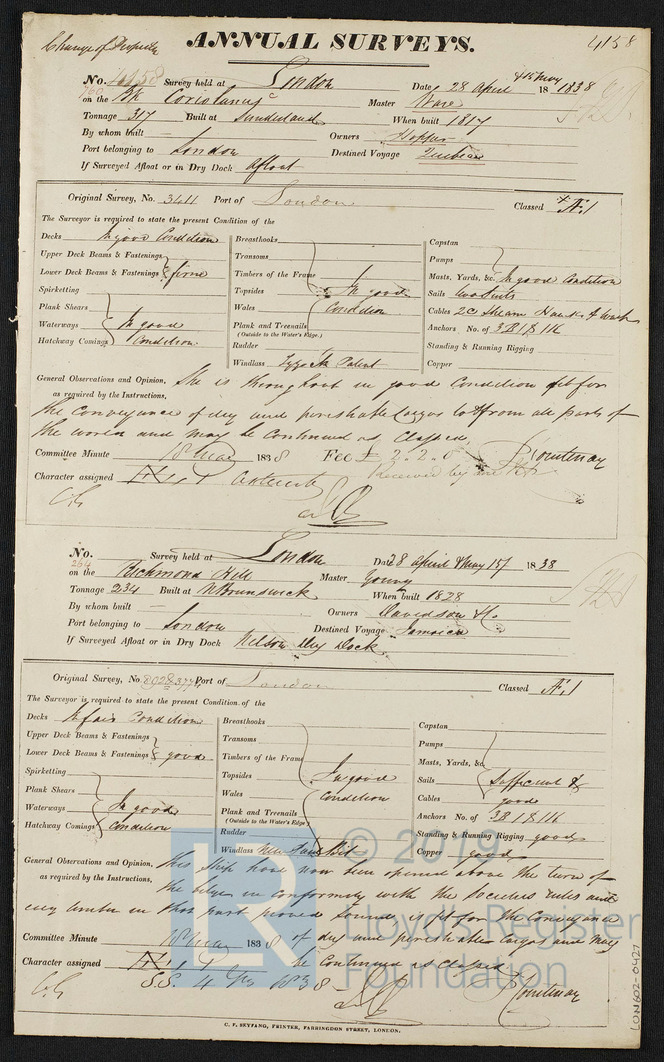 Change of Property
ANNUAL SURVEYS.
4158
No. 4158 Survey held at London Date 28 April & 15 May 18 1838
760 on the Bk Coriolanus Master Ware
Tonnage 317 Built at Sunderland When built 1817
By whom built — Owners Hopper
Port belonging to London Destined Voyage Quebec
If Surveyed Afloat or in Dry Dock Afloat
Original Survey, No. 3411 Port of London Classed Æ 1
The Surveyor is required to state the present Condition of the
Decks In good Condition
Upper Deck Beams & Fastenings
Lower Deck Beams & Fastenings firm
Spirketting
Plank Shears
Waterways In good
Hatchway Comings Condition
Breasthooks
Transoms
Timbers of the Frame
Topsides In good
Wales Condition
Plank and Treenails
(Outside to the Water's Edge.)
Rudder
Windlass Patent
Capstan
Pumps
Masts, Yards, &c. In good Condition
Sails two Suits
Cables 2 C
Anchors No. of 3B 1S 1K
Standing & Running Rigging
Copper
General Observations and Opinion, She is throughout in good Condition fit for
as required by the Instructions,
the conveyance of dry and perishable Cargos to & from all parts of
the world and may be continued as Classed
Committee Minute 18 May 1838 Fee £ 2.2.0 P Courtenay
Character assigned Received by me
No. Survey held at London Date 28 April & May 15th 1838
264 on the Richmond Hill Master Young
Tonnage 234 Built at N Brunswick When built 1828
By whom built — Owners Davidson & Co
Port belonging to London Destined Voyage Jamaica
If Surveyed Afloat or in Dry Dock Nelson Dry Dock
Original Survey, No. Port of London Classed Æ 1
The Surveyor is required to state the present Condition of the
Decks In fair Condition
Upper Deck Beams & Fastenings
Lower Deck Beams & Fastenings good
Spirketting
Plank Shears
Waterways In good
Hatchway Comings Condition
Breasthooks
Transoms
Timbers of the Frame
Topsides In good
Wales Condition
Plank and Treenails
(Outside to the Water's Edge.)
Rudder
Windlass
Capstan
Pumps
Masts, Yards, &c.
Sails Sufficient &
Cables good
Anchors No. of 3B 1S 1K
Standing & Running Rigging good
Copper good
General Observations and Opinion, this Ship have now been opened above the turn of
as required by the Instructions, the bilge in conformity with the Societies rules and
every timber in that part proved Sound, is fit for the Conveyance
Committee Minute 18 May 1838 of dry and perishable Cargos and may
Character assigned be continued as classed
S.S. 4 Yrs 1838 P Courtenay
C. F. SEYFANG, PRINTER, FARRINGDON STREET, LONDON.
LR
© 2019
Lloyd's Register
Foundation
LON602-0427